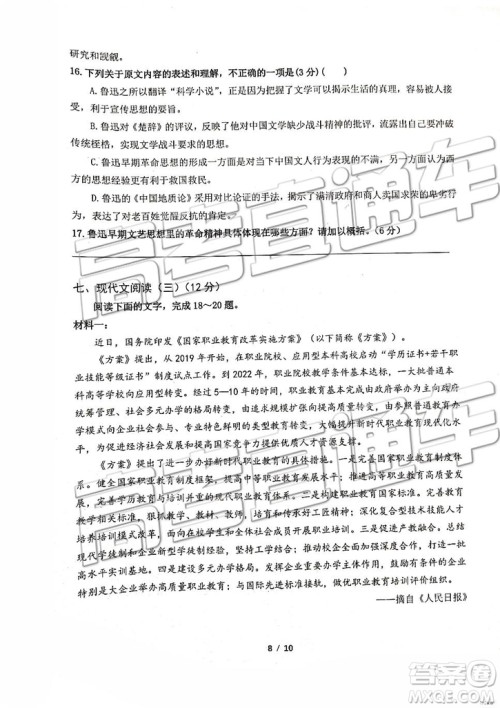 研究和觊觎。
16. 下列关于原文内容的表述和理解，不正确的一项是(3 分)(     )
A. 鲁迅之所以积极翻译“科学小说”，是由于文学可以揭示生活的真理，
利于宣传思想的变革。
B. 鲁迅对《楚辞》的评议，反映了他对中国文学缺少战斗精神的批评，流露出自己冲破
传统桎梏，实现文学战斗力要求的思想。
C. 鲁迅早期革命思想的形成一方面是对当下中国文人人民现状的认识，另一方面认为西
方的思想影响更有利于救国救民。
D. 鲁迅的《中国地质论》采用对比论证的手法，揭示了满清政府和商人卖国求荣的卑劣行
为，表达了对老百姓觉醒反抗的肯定。
17. 鲁迅早期文艺思想里的革命精神具体体现在哪些方面？请加以概括。(6 分)
七、现代文阅读（三）(12 分)
阅读下面的文字，完成 18～20 题。
材料一：
近日，国务院印发《国家职业教育改革实施方案》（以下简称《方案》）。
《方案》提出，从 2019 年开始，在职业院校、应用型本科高校启动“学历证书+若干职
业技能等级证书”制度试点工作。到 2022 年，职业院校教学条件基本达标，一大批普通本
科高等学校向应用型转变。经过 5—10 年的时间，职业教育基本完成由政府举办为主向政府
统筹管理、社会多元办学的格局转变，由追求规模扩张向提高质量转变，由参照普通教育办
学模式向企业社会参与、专业特色鲜明的类型教育转变，大幅提升新时代职业教育现代化水
平，为促进经济社会发展和提高国家竞争力提供优质人才资源支撑。
《方案》提出了进一步办好新时代职业教育的具体
措施。健全国家职业教育制度框架，提高中等职业教育发展水平，推进高等职业教育高质量
发展，完善学历教育与培训并重的现代职业教育体系，完善教育教
学相关标准。狠抓教师、教材、教法，
培养培训模式改革，深化复合型技术技能人才
培养培训模式改革，借鉴
现代学徒制和企业新型学徒制经验，
高水平实训基地。多元办学格局，
的大企业举办高质量职业教育；与国际先进标准接轨，做优职业教育培训评价组织。
——摘自《人民日报》
8 / 10
高考直通车
答案圈
MXQE.COM